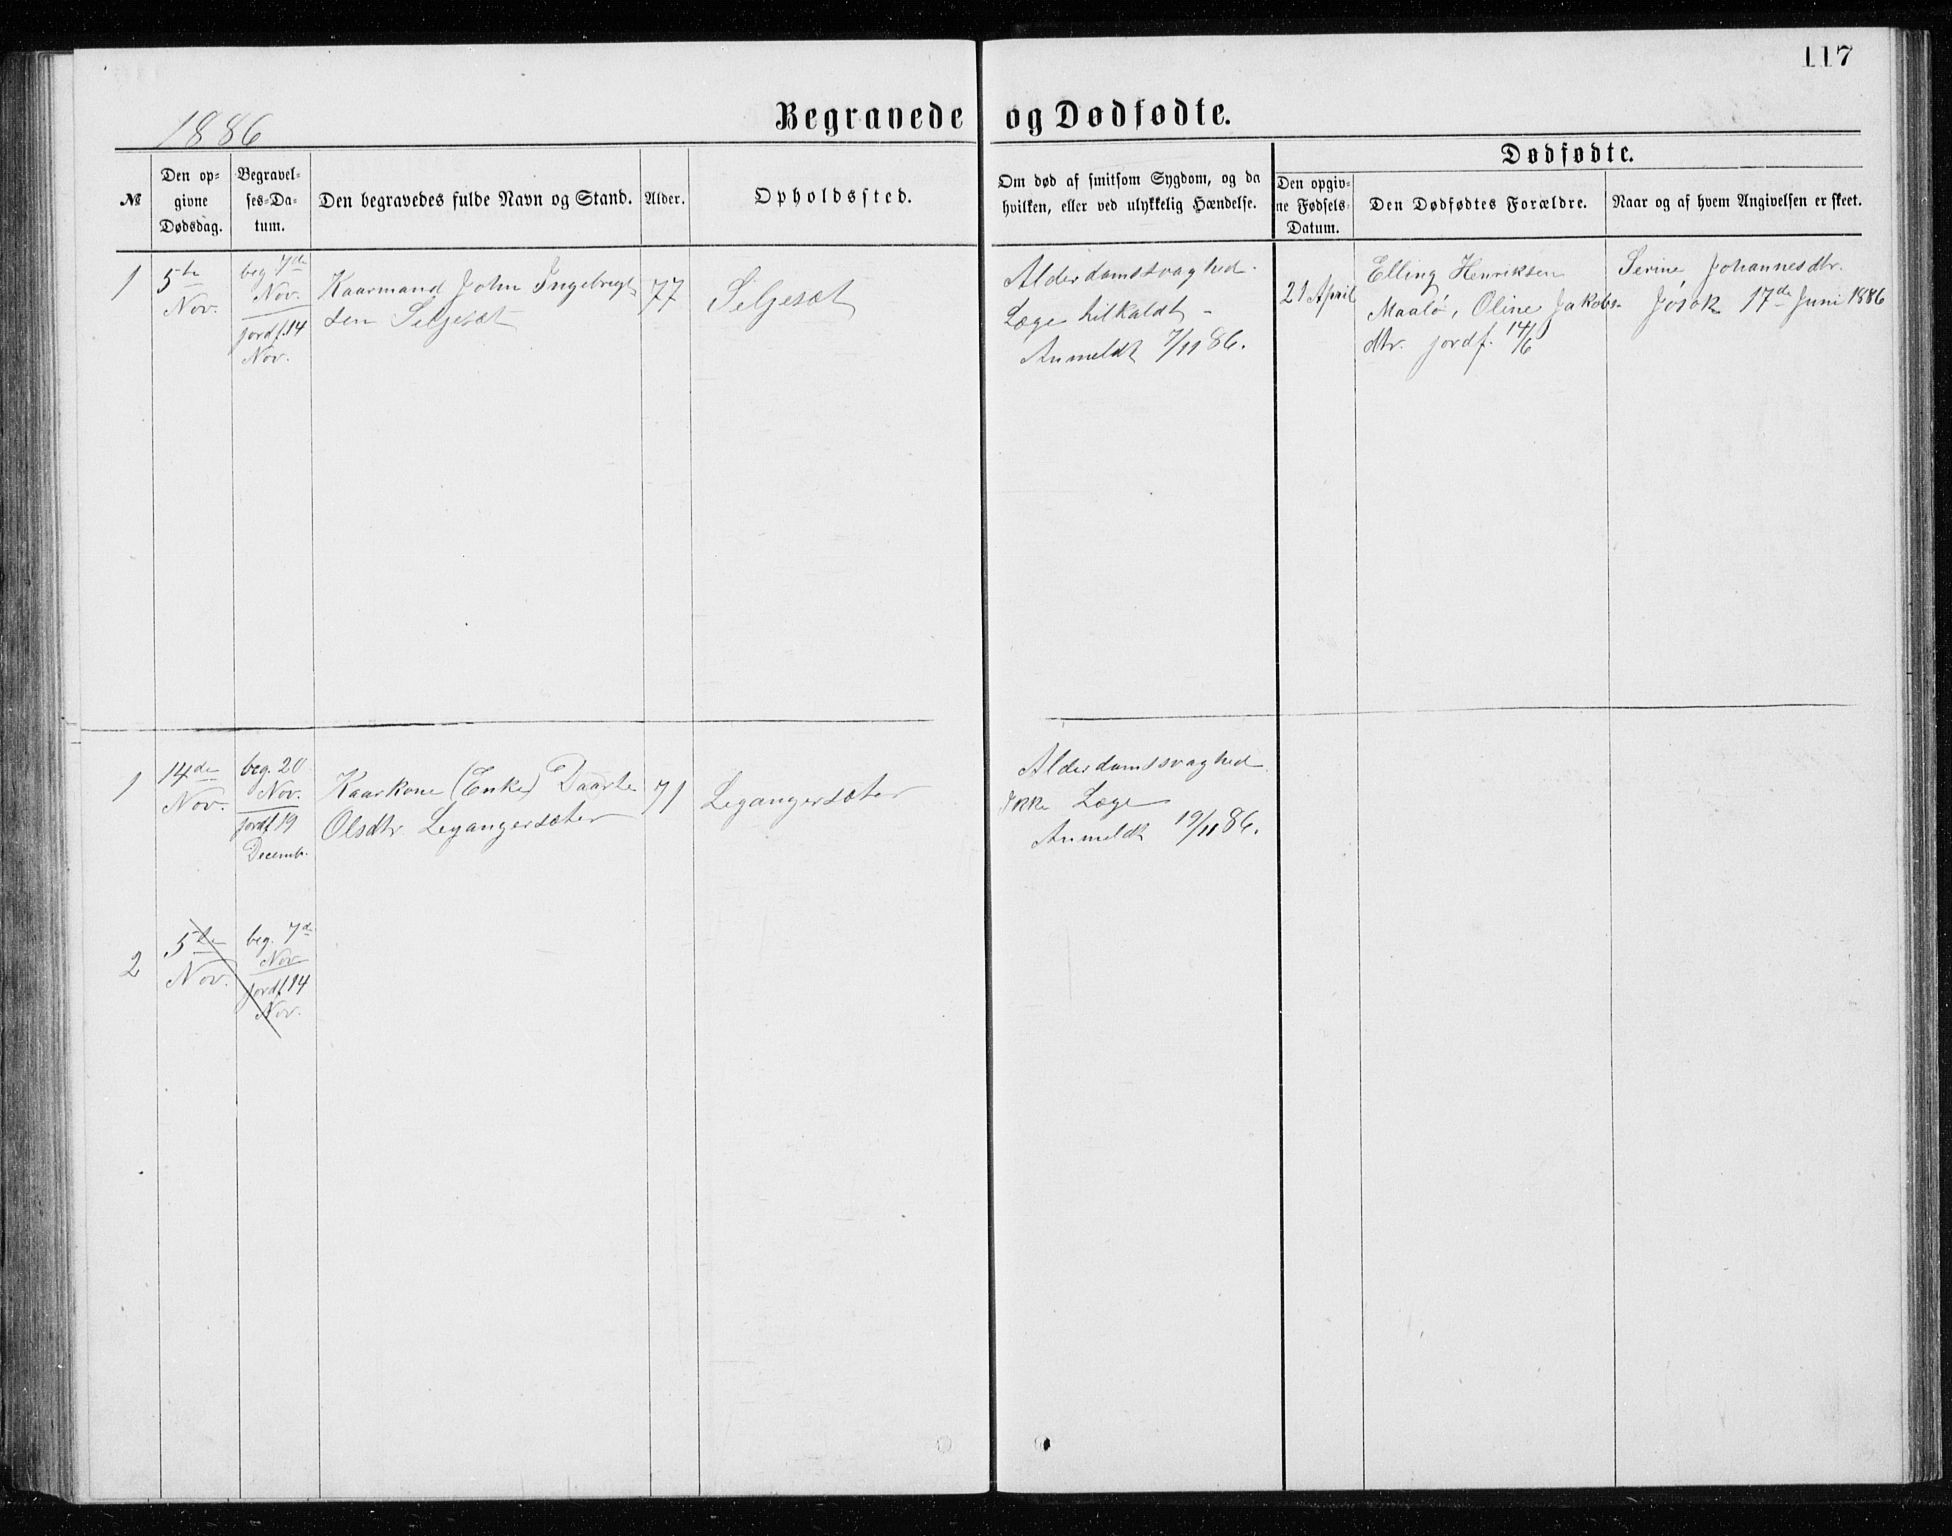 117
1886
Begravede og Dødfødte.
Dødfødte.
№
Den op-
givne
Dødsdag.
Begravel-
ses-Da-
tum.
Den begravedes fulde Navn og Stand.
Alder.
Opholdssted.
Om død af smitsom Sygdom, og da
hvilken, eller ved ulykkelig Hændelse.
Den opgiv-
ne Fødsels-
Datum.
Den Dødfødtes Forældre.
Naar og af hvem Angivelsen er skeet.
1
5te
Nov.
beg. 7de
Nov.
jordf. 14
Nov.
Kaarmand John Ingebrigt
sen Seljesæt
77
Seljesæt
Alderdomssvaghed.
Læge tilkaldt -
Anmeldt 7/11 86.
21 April
Elling Henriksen
Maalö, Oline Jakobs-
dtr. jordf. 14/6
Serine Johannesdtr.
Jösok 17de Juni 1886
1
14de
Nov.
beg. 20
Nov.
jordf. 19
Decemb.
Kaarkone (Enke) Daarte
Olsdtr. Legangersæter
71
Legangersæter
Alderdomssvaghed.
Ikke Læge
Anmeldt 19/11 86.
2
5te
Nov.
beg. 7de
Nov.
jordf. 14
Nov.